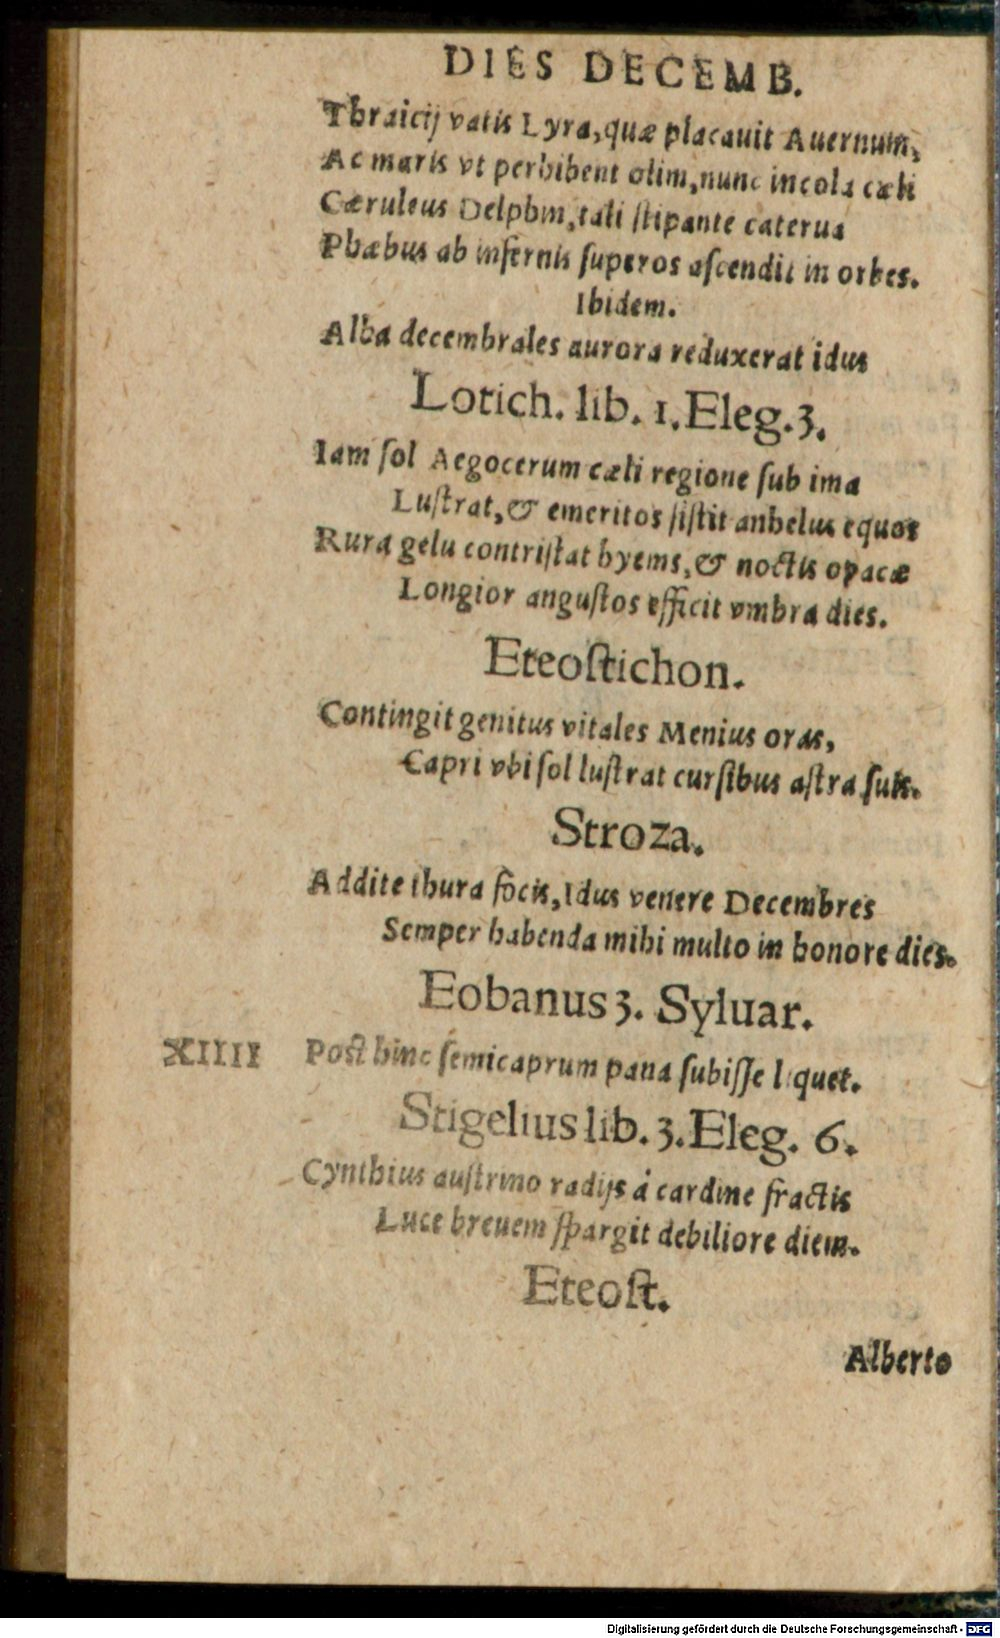 DIES DECEMB.
Thraicij vatis Lyra, quæ placauit Auernum,
Ac maris vt perhibent olim, nunc incola cæli
Cæruleus Delphin, tali ſtipante caterua
Phæbus ab infernis ſuperos aſcendit in orbes.
Ibidem.
Alba decembrales aurora reduxerat idus
Lotich. lib. 1. Eleg. 3.
Iam ſol Aegocerum cæli regione ſub ima
Luſtrat, & emeritos ſiſtit anhelus equos
Rura gelu contriſtat hyems, & noctis opacæ
Longior anguſtos efficit vmbra dies.
Eteoſtichon.
Contingit genitus vitales Menius oras,
Capri vbi ſol luſtrat curſibus aſtra ſuis.
Stroza.
Addite thura focis, Idus venere Decembres
Semper habenda mihi multo in honore dies.
Eobanus 3. Syluar.
XIIII Poſt hinc ſemicaprum pana ſubiſſe liquet.
Stigelius lib. 3. Eleg. 6.
Cynthius auſtrino radijs à cardine fractis
Luce breuem ſpargit debiliore diem.
Eteoſt.
Alberto
Digitalisierung gefördert durch die Deutsche Forschungsgemeinschaft - DFG